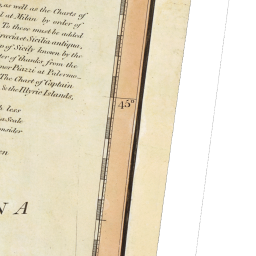 , as well as the Charts of
d at Milan by order of
To these must be added
racia et Sicilia antiqua,
p of Sicily known by the
ter of thanks, from the
mer Piazzi at Palermo_
The Chart of Captain
& the Illyric Islands,
less
a Scale
onsider
en
45°
N A